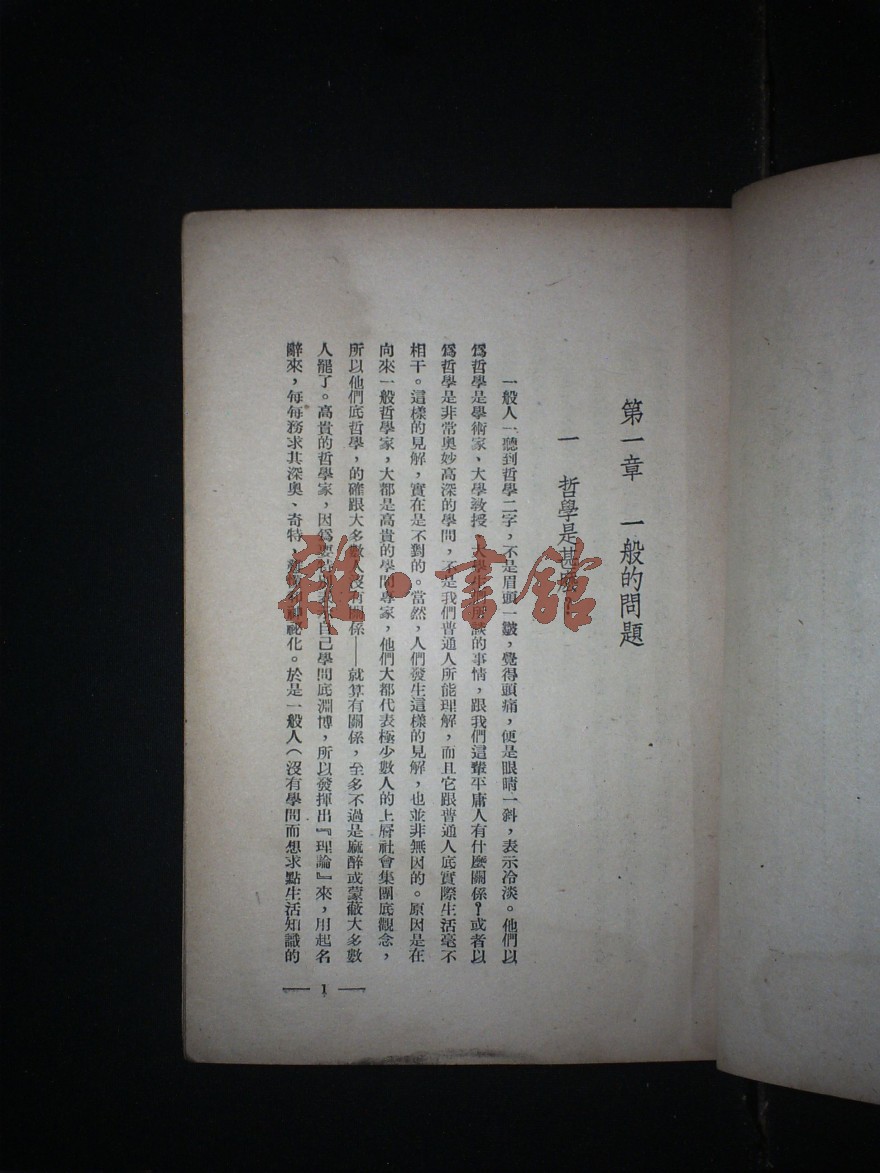 第一章　一般的問題
一　哲學是甚麼？
一般人一聽到哲學二字，不是眉頭一皺，覺得頭痛，便是眼睛一斜，表示冷淡。他們以
爲哲學是學術家、大學教授、大學生們所談的事情，跟我們這輩平庸人有什麼關係？或者以
爲哲學是非常奧妙高深的學問，不是我們普通人所能理解，而且它跟普通人底實際生活毫不
相干。這樣的見解，實在是不對的。當然，人們發生這樣的見解，也並非無因的。原因是在
向來一般哲學家，大都是高貴的學問專家，他們大都代表極少數人的上層社會集團底觀念，
所以他們底哲學，的確跟大多數人沒有關係——就算有關係，至多不過是麻醉或蒙蔽大多數
人罷了。高貴的哲學家，因爲要自己學問底淵博，所以發揮出『理論』來，用起名
辭來，每每務求其深奧、奇特、神祕化。於是一般人（沒有學問而想求點生活知識的
— 1 —
雜·書館